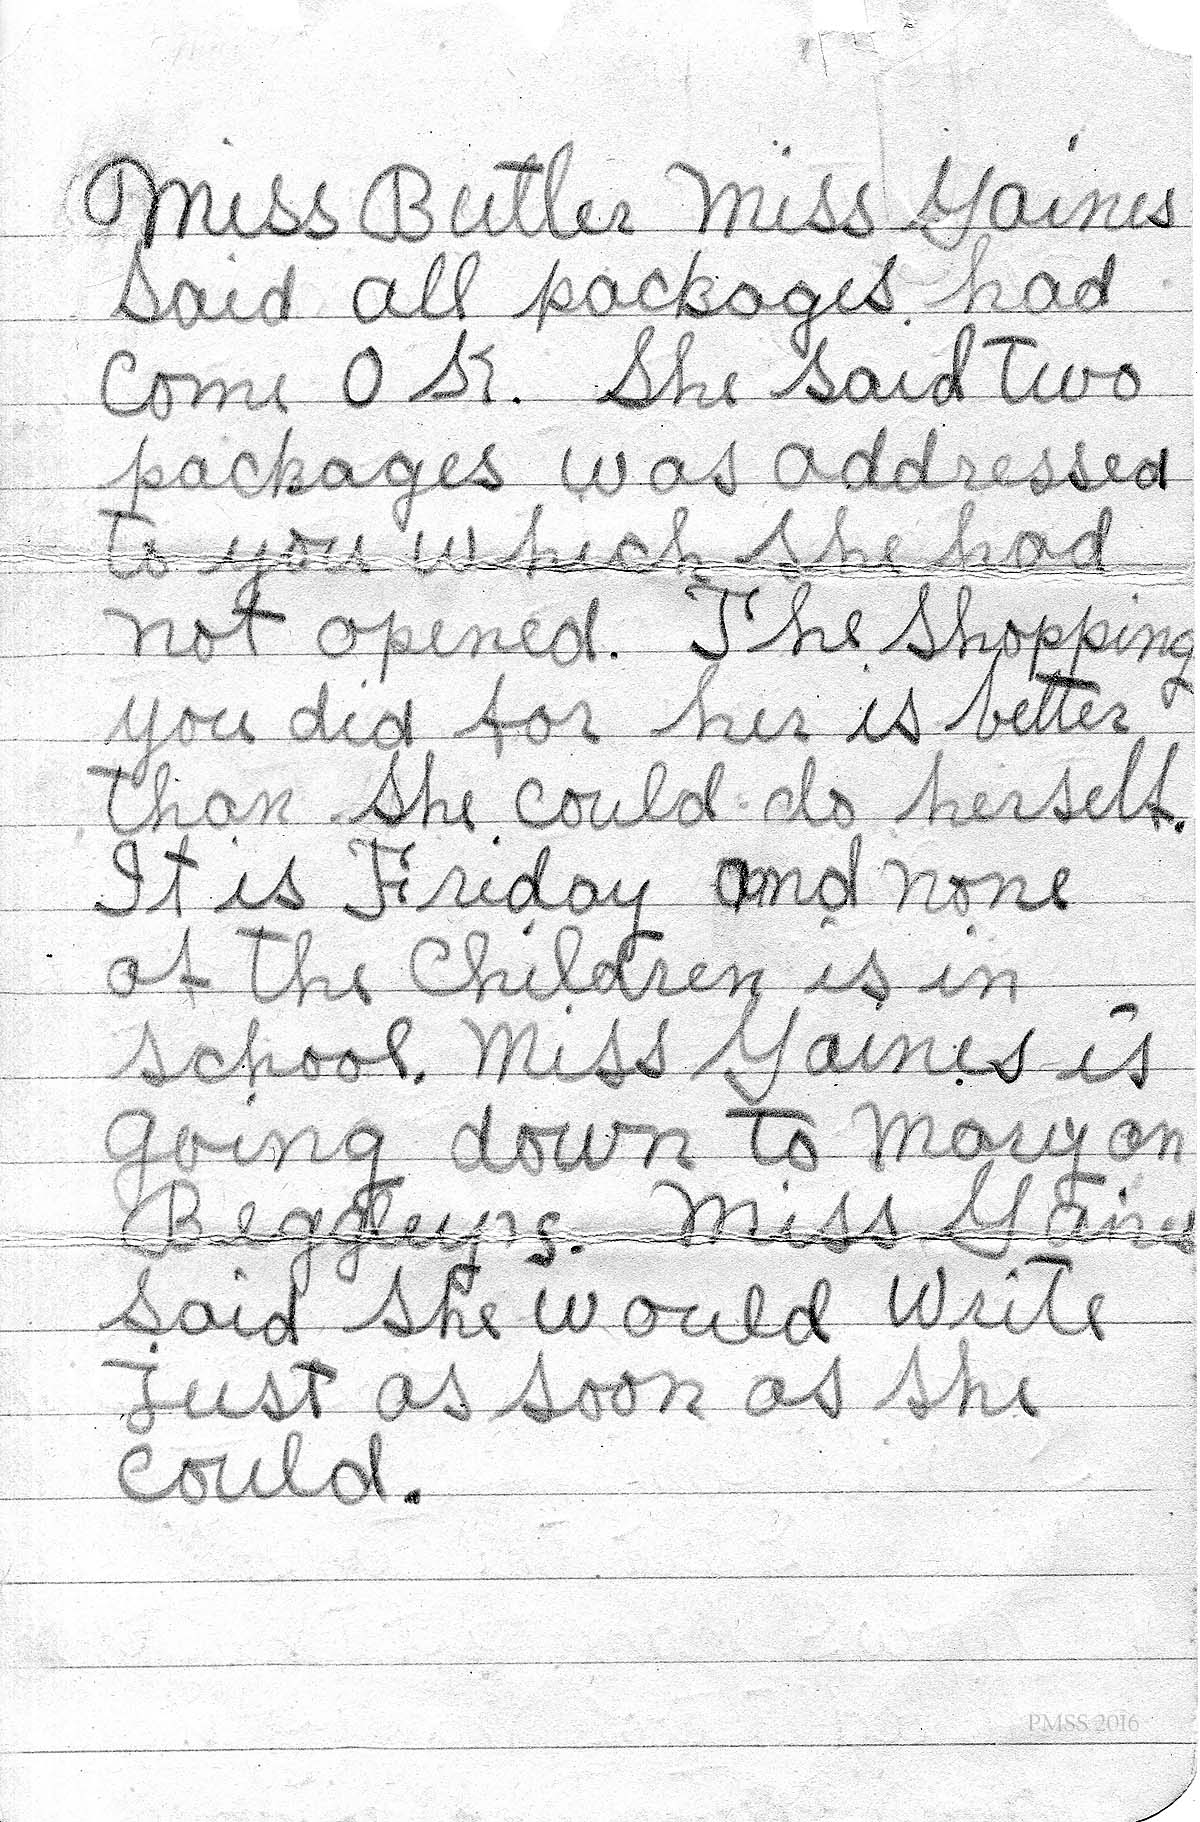 Miss Butler Miss Gaines
said all packages had
come O K. She said two
packages was addressed
to you which she had
not opened. The shopping
you did for her is better
than she could do herself.
It is Friday and none
of the Children is in
school. Miss Gaines is
going down to Mary on
Beggleys. Miss Gaines
said she would write
Just as soon as she
could.
PMSS 2016